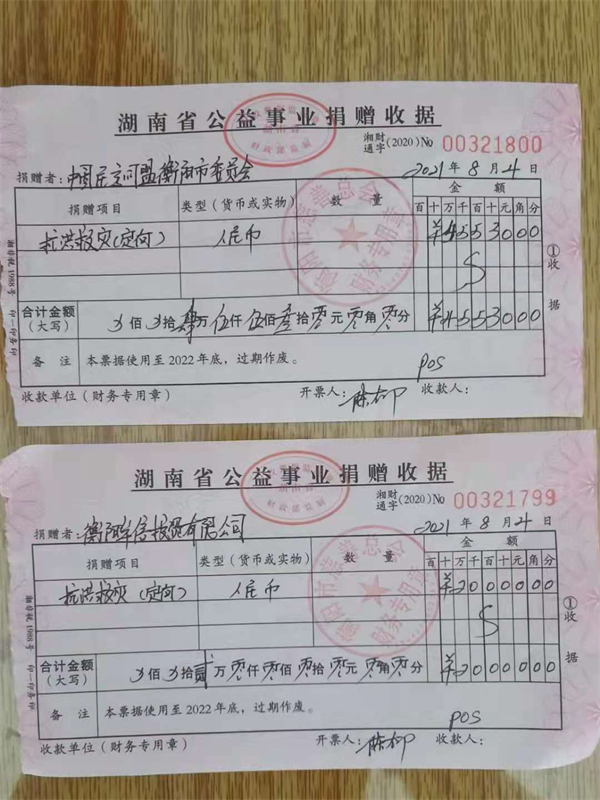 湖南省公益事业捐赠收据
湘财通字(2020)No 00321800
捐赠者:中国民主同盟衡阳市委员会 2021年8月4日
捐赠项目 类型(货币或实物) 数量 金额
百十万千百十元角分
抗洪救灾(定向) 人民币 ¥4553000
合计金额(大写) 佰 拾肆万伍仟伍佰叁拾零元零角零分 ¥4553000
备注 本票据使用至2022年底,过期作废。 POS
收款单位(财务专用章) 开票人: 收款人:
①收据
衡阳市慈善总会
财务专用章
财政部监制
湖南省公益事业捐赠收据
湘财通字(2020)No 00321799
捐赠者:衡阳 信投资有限公司 2021年8月4日
捐赠项目 类型(货币或实物) 数量 金额
百十万千百十元角分
抗洪救灾(定向) 人民币 ¥2000000
合计金额(大写) 佰 拾贰万零仟零佰零拾零元零角零分 ¥2000000
备注 本票据使用至2022年底,过期作废。 POS
收款单位(财务专用章) 开票人: 收款人:
①收据
衡阳市慈善总会
财务专用章
财政部监制